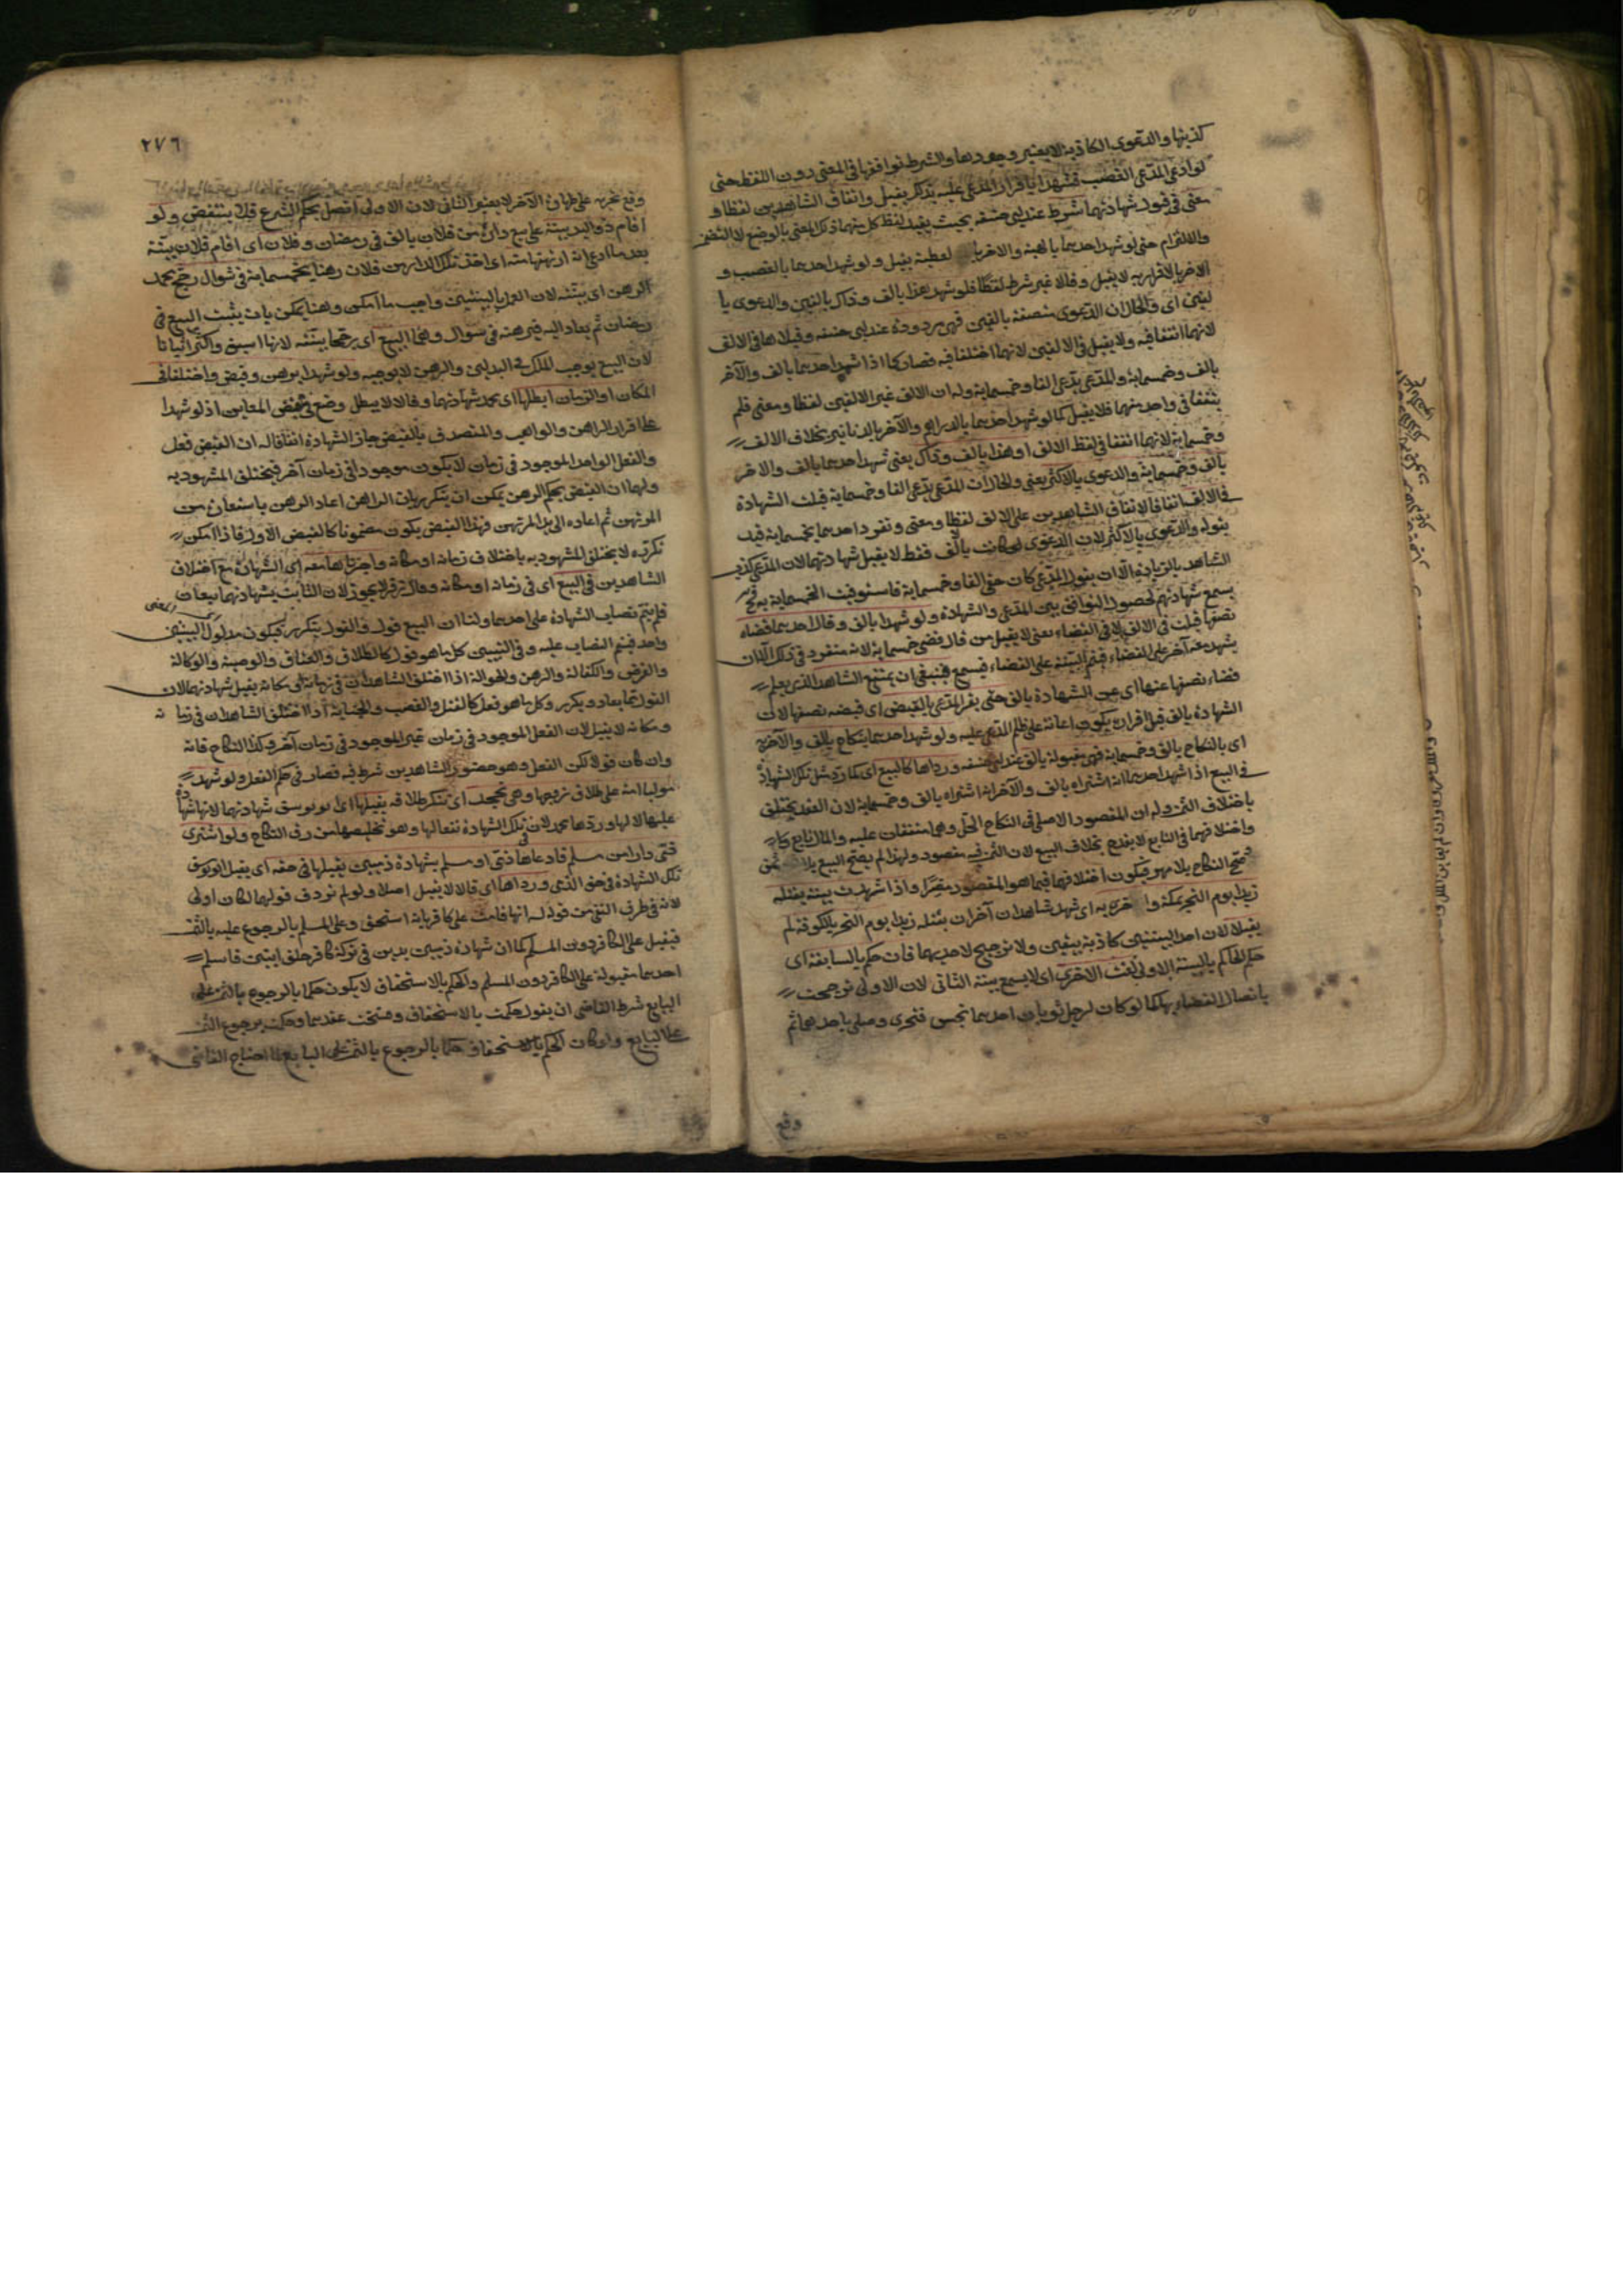 كذبها والدعوى الكاذبة لا يعتبر وجودها والشرط توافقها في المعنى دون اللفظ حتى
لو ادعى المدعي الغصب فشهدا باقرار المدعى عليه بذلك يقبل واتفاق الشاهدين لفظا و
معنى في قبول شهادتهما شرط عند ابي حنيفة بحيث يفيد لفظ كل منهما ذلك المعنى بالوضع لا التضمن
والالتزام حتى لو شهد احدهما بالهبة والاخر بالعطية يقبل ولو شهد احدهما بالغصب و
الاخر بالاقرار به لا يقبل وقالا غير شرط لفظا فلو شهد هذا بالف وذاك بالفين والدعوى با
لفين اي والحال ان الدعوى متصفة بالفين فهي مردودة عند ابي حنيفة وقبلاها في الالف
لانهما اتفقا فيه ولا يقبل في الالفين لانهما اختلفا فيه فصار كما اذا شهد احدهما بالف والآخر
بالف وخمسماية والمدعي يدعي الفا وخمسماية وله ان الالف غير الالفين لفظا ومعنى فلم
يتفقا في واحد منهما فلا يقبل كما لو شهد احدهما بالدراهم والآخر بالدنانير بخلاف الالف
وخمسماية لانهما اتفقا في لفظ الالف او هذا بالف وذاك يعني شهد احدهما بالف والاخر
بالف وخمسماية والدعوى بالاكثر يعني والحال ان المدعي يدعي الفا وخمسماية قبلت الشهادة
في الالف اتفاقا لاتفاق الشاهدين على الالف لفظا ومعنى وتفرد احدهما بخمسماية قيد
بقوله والدعوى بالاكثر لان الدعوى لو كانت بالف فقط لا يقبل شهادتهما لان المدعي كذب
الشاهد بالزيادة الا ان يقول المدعي كان حقي الفا وخمسماية فاستوفيت الخمسماية فح
يسمع شهادتهم لحصول التوافق بين المدعى والشهادة ولو شهدا بالف وقال احدهما قضاه
نصفها قبلت في الالف لا في القضاء يعني لا يقبل من قال قضى خمسماية لانه متفرد في ذلك الا ان
يشهد معه آخر على القضاء فيتم البينة على القضاء فيسمع فينبغي ان يمتنع الشاهد الذي يعلم
قضاء نصفها عنها اي عن الشهادة بالف حتى يقر المدعي بالقبض اي قبضه نصفها لان
الشهادة بالف قبل اقراره يكون اعانة على ظلم المدعى عليه ولو شهد احدهما بنكاح بالف والآخر به
اي بالنكاح بالف وخمسماية فهي مقبولة بالف عند ابي حنيفة ورداها كالبيع اي كما رد مثل تلك الشهادة
في البيع اذا شهد احدهما انه اشتراه بالف والآخر انه اشتراه بالف وخمسماية لان العقد يختلف
باختلاف الثمن وله ان المقصود الاصلي في النكاح الحل وهما متفقان عليه والمال تابع
واختلافهما في التابع لا يقدح بخلاف البيع لان الثمن فيه مقصود ولهذا لم يصح البيع بلا ثمن
وصح النكاح بلا مهر فيكون اختلافهما فيما هو المقصود مضرا واذا شهدت بينة بقتله
زيدا يوم النحر بمكة واخرى به اي شهد شاهدان آخران بقتله زيدا يوم النحر بالكوفة لم
يقبلا لان احد البينتين كاذبة بيقين ولا ترجيح لاحديهما فان حكم بالسابقة اي
حكم الحاكم بالبينة الاولى لغت الاخرى اي لا يسمع بينة الثاني لان الاولى ترجحت
باتصال القضاء بها كما لو كان لرجل ثوبان احدهما نجس فتحرى وصلى باحدهما ثم
وقع
٢٧٦
وقع تحريه على طهارة الآخر لا يعتبر الثاني لان الاولى اتصل بحكم الشرع فلا ينتقض ولو
اقام ذو اليد بينة على بيع داره من فلان بالف في رمضان وفلان اي اقام فلان بينة
بعد ما ادعى انه ارتهنها منه اي اخذ تلك الدار من فلان رهنا بخمسماية في شوال رجح محمد
الرهن اي بينته لان العمل بالبينتين واجب ما امكن وهنا يمكن بان يثبت البيع في
رمضان ثم يعاد اليه فيرهنه في شوال وهما البيع اي رجحا بينته لانها اسبق واكثر اثباتا
لان البيع يوجب الملك في البدلين والرهن لا يوجبه ولو شهدا برهن وقبض واختلفا في
المكان او الزمان ابطلها اي محمد شهادتهما وقالا لا يبطل وضع في القبض المعاين اذ لو شهدا
على اقرار الراهن والواهب والمتصدق بالقبض جاز الشهادة اتفاقا له ان القبض فعل
والفعل الواحد الموجود في زمان لا يكون موجودا في زمان آخر فيختلف المشهود به
ولهما ان القبض بحكم الرهن يمكن ان يتكرر بان الراهن اعاد الرهن باستعارة من
المرتهن ثم اعاده الى يد المرتهن فهذا القبض يكون مضمونا كالقبض الاول فاذا امكن
تكرره لا يختلف المشهود به باختلاف زمانه او مكانه واجزناها معه اي الشهادة مع اختلاف
الشاهدين في البيع اي في زمانه او مكانه وقال زفر لا يجوز لان الثابت بشهادتهما بيعان
فلم يتم نصاب الشهادة على احدهما ولنا ان البيع قول والقول يتكرر فيكون مدلول البيعين
واحد فيتم النصاب عليه وفي التبيين كل ما هو قول كالطلاق والعتاق والوصية والوكالة
والقرض والكفالة والرهن والحوالة اذا اختلف الشاهدان في زمانه او مكانه يقبل شهادتهما لان
القول مما يعاد ويكرر وكل ما هو فعل كالقتل والغصب والجناية اذا اختلف الشاهدان في زمانه
ومكانه لا يقبل لان الفعل الموجود في زمان غير الموجود في زمان آخر وكذا النكاح فانه
وان كان قولا لكن الفعل وهو حضور الشاهدين شرط فيه فصار في حكم الفعل ولو شهد
موليا امة على طلاق زوجها وهي تجحد اي تنكر طلاقه يقبلها اي ابو يوسف شهادتهما لانها شهادة
عليها لا لها وردها محمد لان في تلك الشهادة نفعا لها وهو تخليصها من رق النكاح ولو اشترى
ذمي دارا من مسلم فادعاها ذمي او مسلم بشهادة ذميين يقبلها في حقه اي يقبل ابو يوسف
تلك الشهادة في حق الذمي ورداها اي قالا لا يقبل اصلا ولو لم نردف قولهما لكان اولى
لانه في طرف النفي من قوله له انها قامت على كافر بانه استحق وعلى المسلم بالرجوع عليه بالثمن
فيقبل على الكافر دون المسلم كما ان شهادة ذميين بدين في تركة كافر خلف ابنين فاسلم
احدهما مقبولة على الكافر دون المسلم والحكم بالاستحقاق لا يكون حكما بالرجوع بالثمن على
البايع شرط القاضي ان يقول حكمت بالاستحقاق وفسخت عقدهما وحكمت برجوع الثمن
على البايع ولو كان الحكم بالاستحقاق حكما بالرجوع بالثمن على البايع لما احتاج القاضي